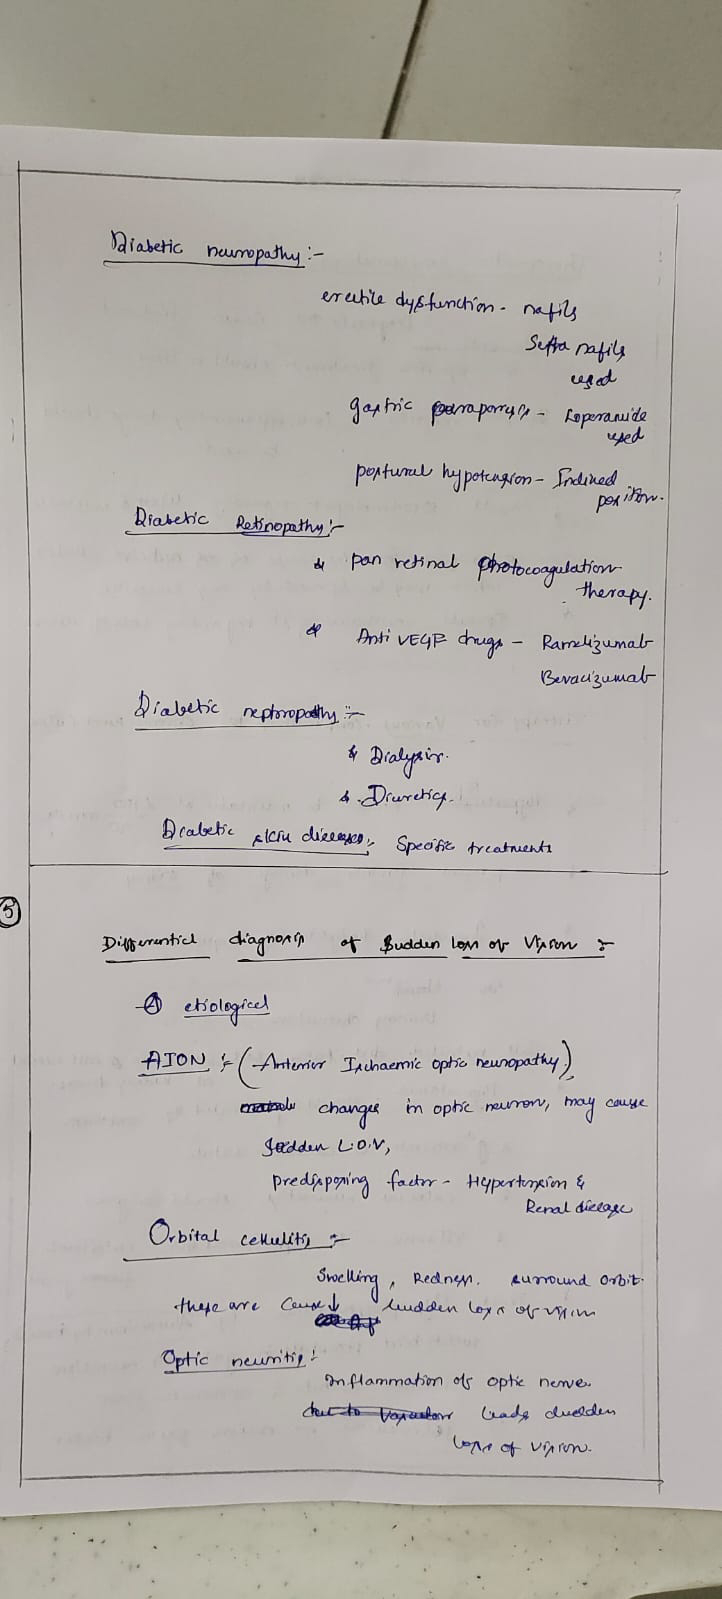 Diabetic neuropathy :-
erectile dysfunction - nafils
nafils
used
gastric - Loperamide
used
postural hypotension - Inclined
position.
Diabetic Retinopathy :-
pan retinal photocoagulation
therapy.
Anti VEGF drugs -
Bevacizumab
Diabetic nephropathy :-
Dialysis.
Diuretics.
Diabetic skin diseases, Specific treatments
5
Differential diagnosis of Sudden loss of Vision :-
A etiological
AION :- (Anterior Ischaemic optic neuropathy)
changes in optic neuron, may cause
Sudden L.O.V,
predisposing factor - Hypertension &
Renal disease
Orbital cellulitis :-
Swelling, Redness. surround orbit.
these are cause sudden loss of vision
Optic neuritis :-
Inflammation of optic nerve
leads
loss of vision.